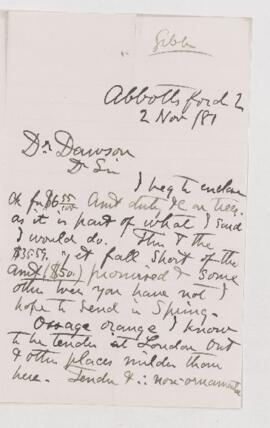 Gibb
Abbottsford Q
2 Nov/81
Dr Dawson
Dr Sir
I beg to enclose
Ck for $6.55 Amt duty &c on trees.
as it is part of what I said
I would do. This & the
$35.59. is yet fall short of the
amt ($50.) promised & some
other trees you have not I
hope to send in Spring.
Ossage orange I know
to be tender at London Ont
& other places milder than
here. Tender & ∴ non-ornamental